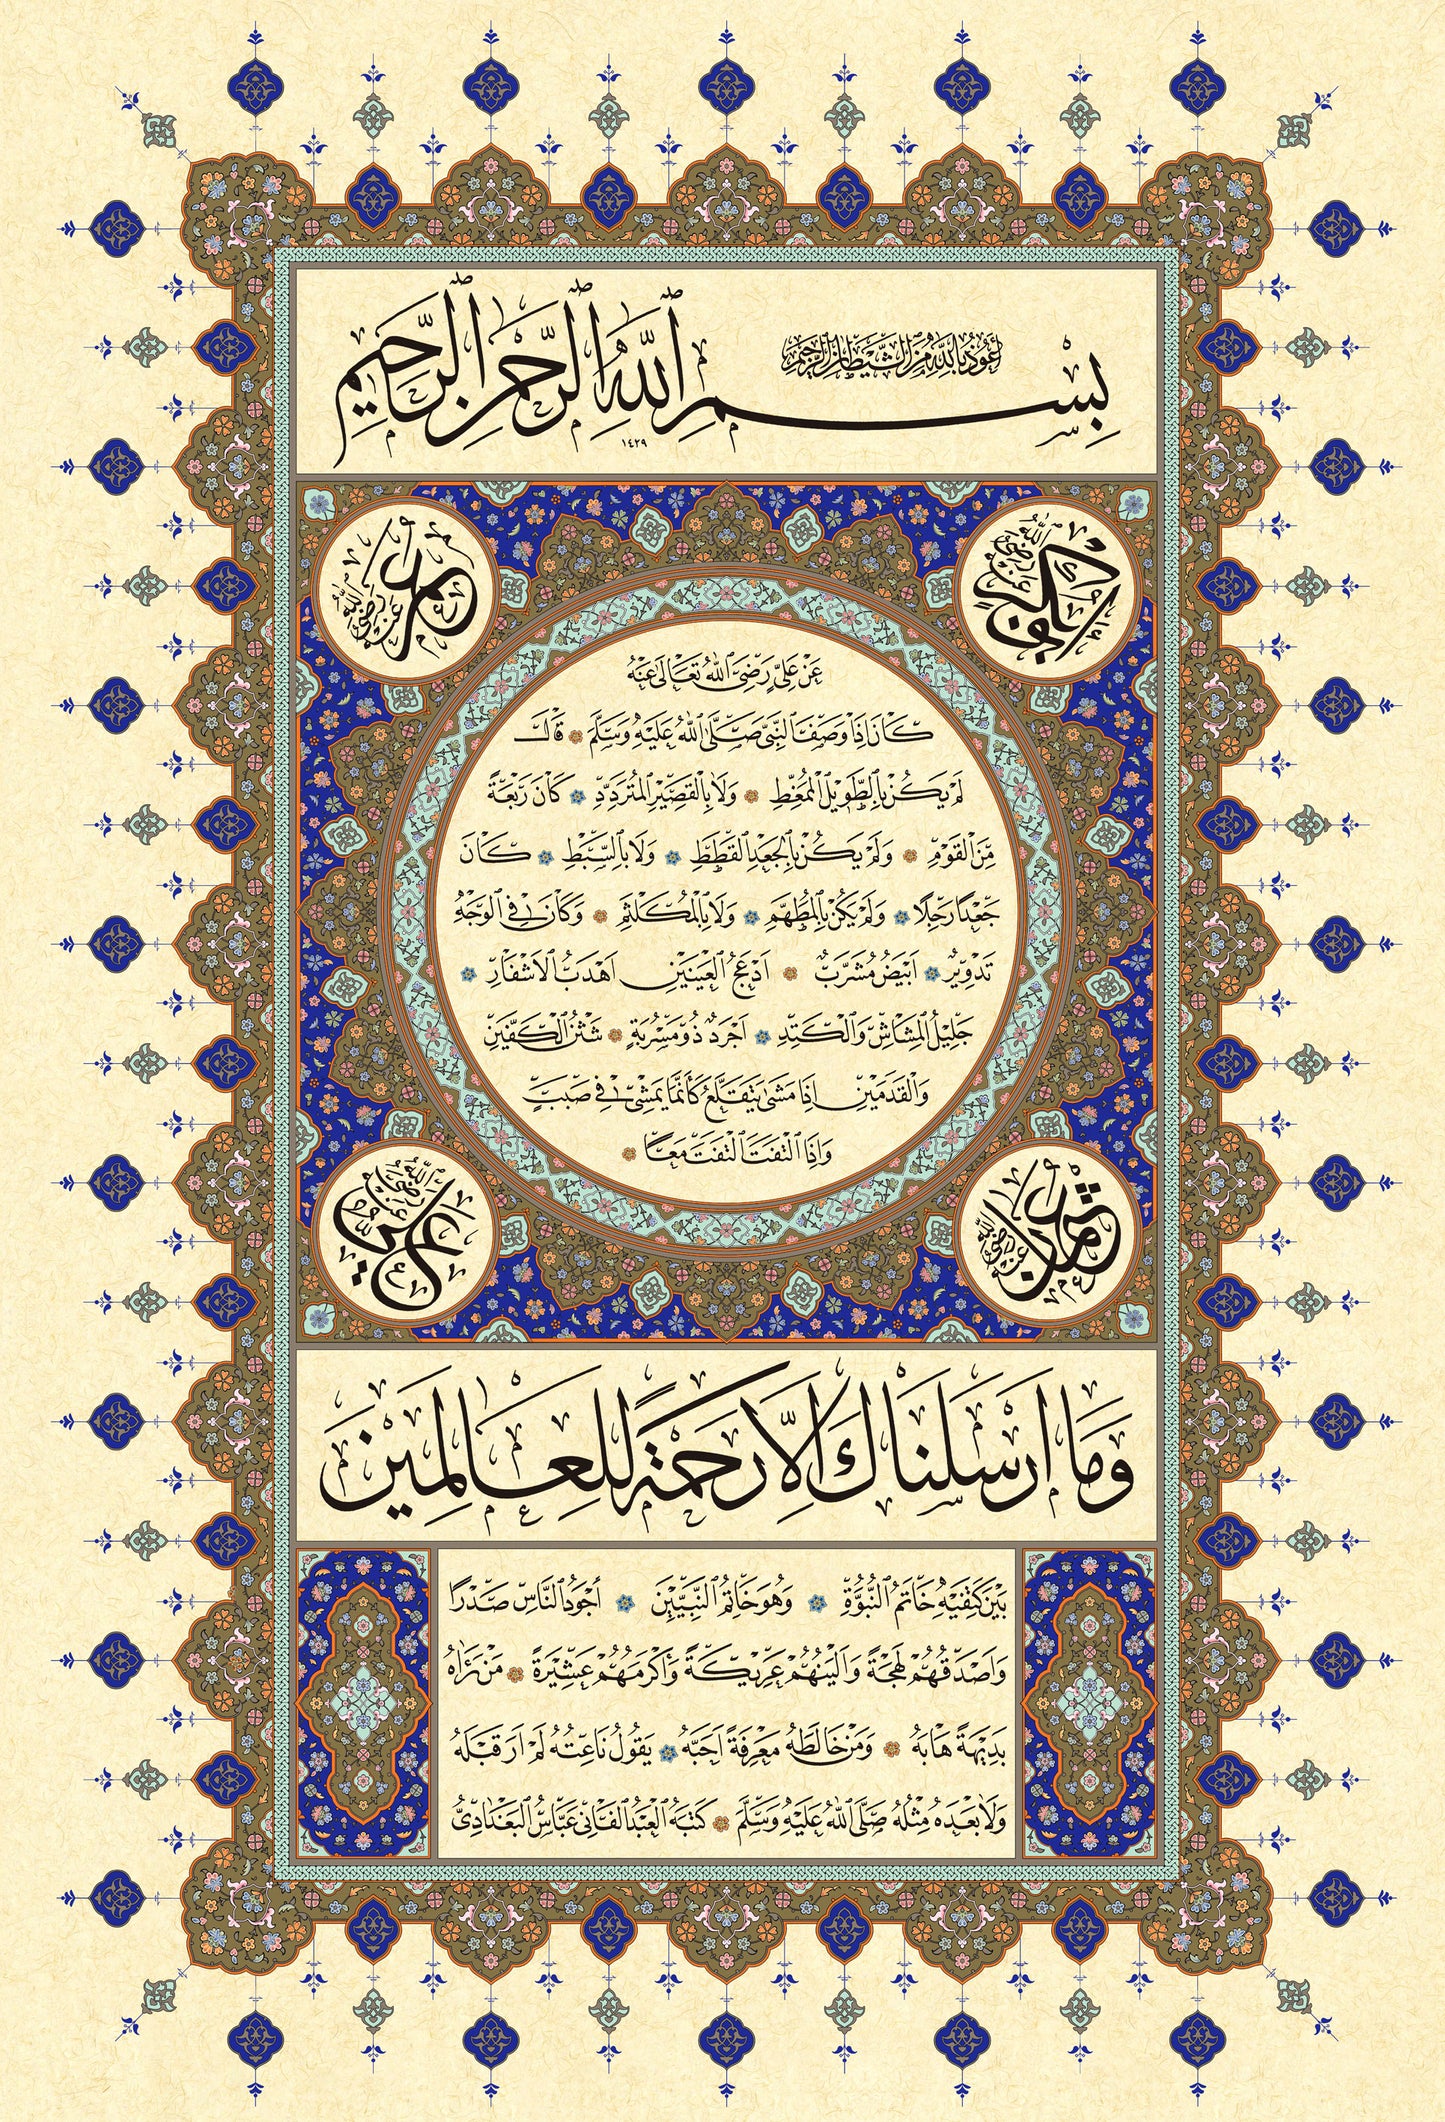 أَعُوذُ بِاللّٰهِ مِنَ الشَّيْطَانِ الرَّجِيمِ
بِسْمِ اللّٰهِ الرَّحْمٰنِ الرَّحِيمِ
١٤٢٩
ابو بكر رضي الله عنه
عمر رضي الله عنه
عَنْ عَلِيٍّ رَضِيَ اللّٰهُ تَعَالٰى عَنْهُ
كَانَ اِذَا وَصَفَ النَّبِيَّ صَلَّى اللّٰهُ عَلَيْهِ وَسَلَّمَ قَالَ
لَمْ يَكُنْ بِالطَّوِيْلِ الْمُمَّغِطِ وَلَا بِالْقَصِيْرِ الْمُتَرَدِّدِ كَانَ رَبْعَةً
مِنَ الْقَوْمِ وَلَمْ يَكُنْ بِالْجَعْدِ الْقَطَطِ وَلَا بِالسَّبِطِ كَانَ
جَعْدًا رَجِلًا وَلَمْ يَكُنْ بِالْمُطَهَّمِ وَلَا بِالْمُكَلْثَمِ وَكَانَ فِي الْوَجْهِ
تَدْوِيْرٌ اَبْيَضُ مُشْرَبٌ اَدْعَجُ الْعَيْنَيْنِ اَهْدَبُ الْاَشْفَارِ
جَلِيْلُ الْمُشَاشِ وَالْكَتَدِ اَجْرَدُ ذُوْ مَسْرُبَةٍ شَثْنُ الْكَفَّيْنِ
وَالْقَدَمَيْنِ اِذَا مَشٰى يَتَقَلَّعُ كَأَنَّمَا يَمْشِيْ فِي صَبَبٍ
وَاِذَا الْتَفَتَ الْتَفَتَ مَعًا
عثمان رضي الله عنه
علي رضي الله عنه
وَمَا اَرْسَلْنَاكَ اِلَّا رَحْمَةً لِلْعَالَمِيْنَ
بَيْنَ كَتِفَيْهِ خَاتَمُ النُّبُوَّةِ وَهُوَ خَاتَمُ النَّبِيِّيْنَ أَجْوَدُ النَّاسِ صَدْرًا
وَاَصْدَقُهُمْ لَهْجَةً وَاَلْيَنُهُمْ عَرِيْكَةً وَأَكْرَمُهُمْ عَشِيْرَةً مَنْ رَاٰهُ
بَدِيْهَةً هَابَهُ وَمَنْ خَالَطَهُ مَعْرِفَةً اَحَبَّهُ يَقُوْلُ نَاعِتُهُ لَمْ اَرَ قَبْلَهُ
وَلَا بَعْدَهُ مِثْلَهُ صَلَّى اللّٰهُ عَلَيْهِ وَسَلَّمَ كَتَبَهُ الْعَبْدُ الْفَانِي عَبَّاسُ الْبَغْدَادِيُّ